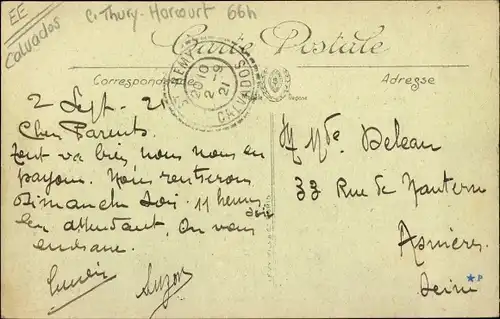 EE
Calvados
C. Thury-Harcourt 66h
Carte Postale
Correspondance
Adresse
S-REMY
20 10
2 -9
21
CALVADOS
2 Sept. 21
Chers Parents.
tout va bien nous nous en
payons. Nous rentrerons
Dimanche soir 11 heures
soir
en attendant, On vous
embrasse.
Lucien Suzon
M Mde Deleau
33 Rue de Nanterre
Asnières
Seine
*P